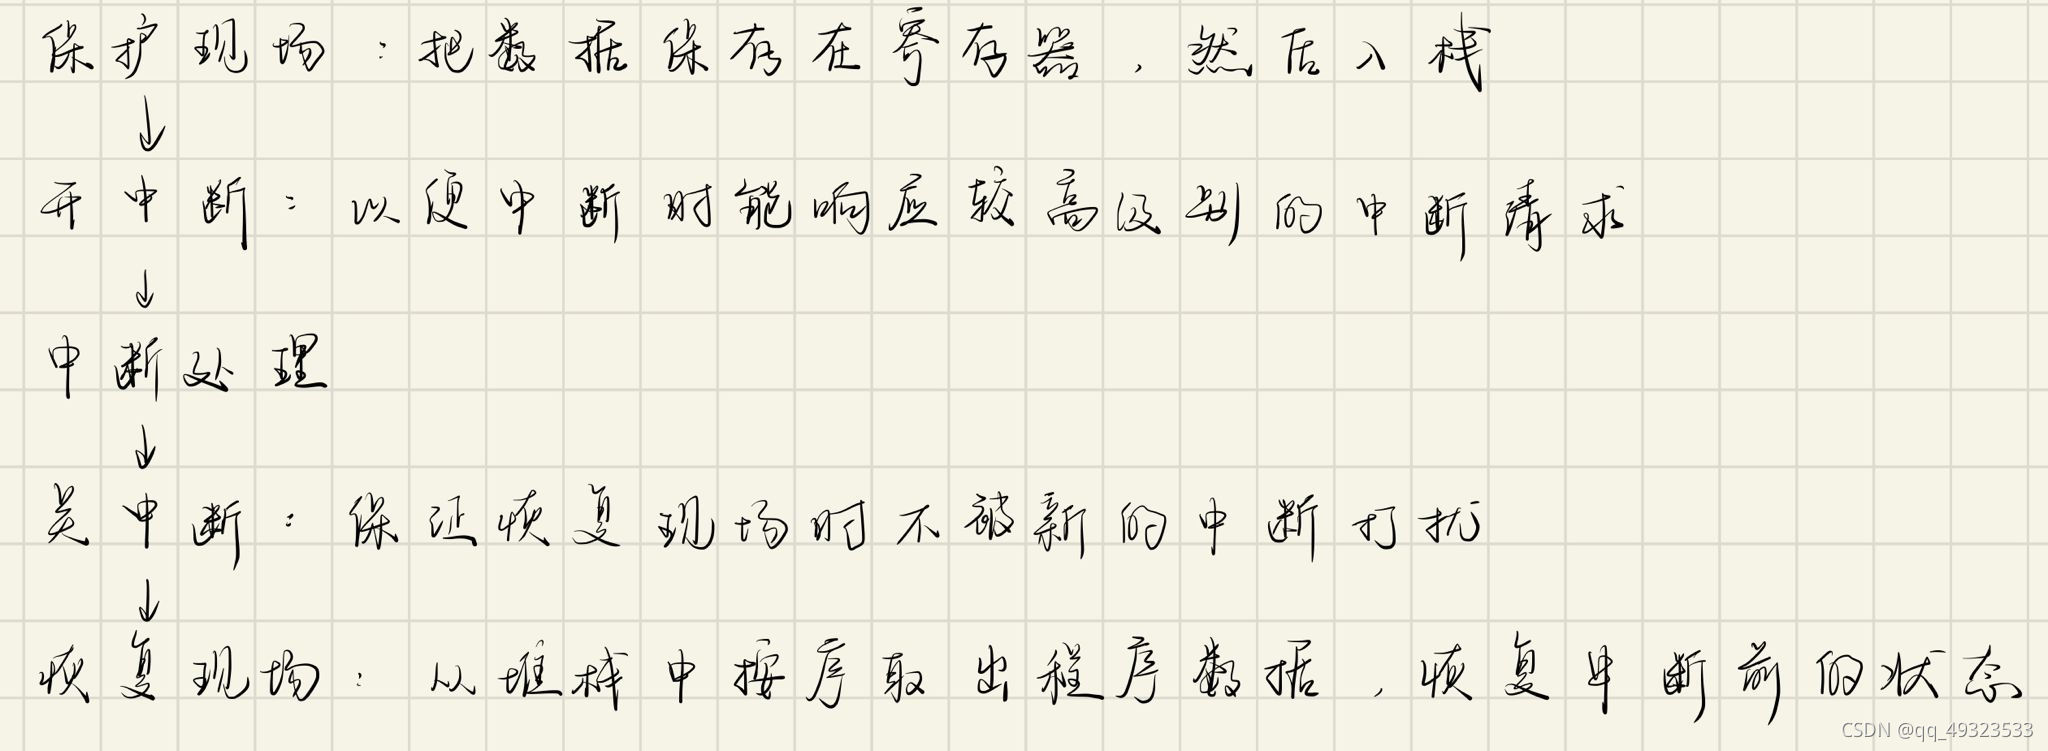 保护现场：把数据保存在寄存器，然后入栈
↓
开中断：以便中断时能响应较高级别的中断请求
↓
中断处理
↓
关中断：保证恢复现场时不被新的中断打扰
↓
恢复现场：从堆栈中按序取出程序数据，恢复中断前的状态
CSDN @qq_49323533